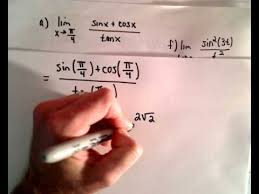 a) lim x→π/4 sinx + cosx / tanx
f.) lim sin²(3t) / t²
= sin(π/4) + cos(π/4) /
2√2